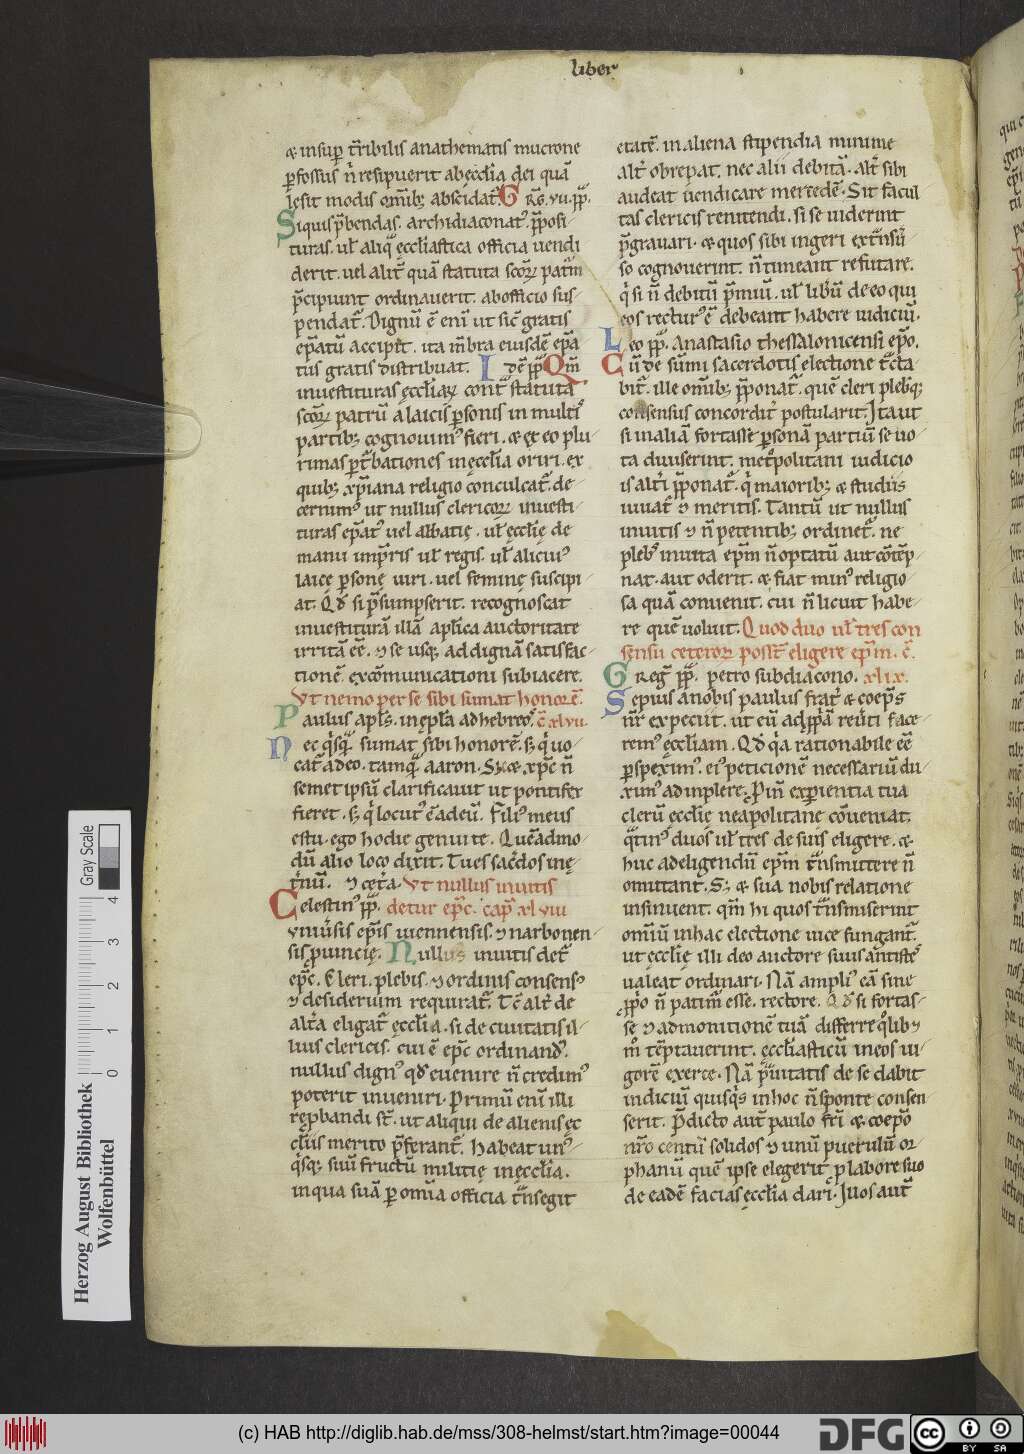 liber
& insup t̄ribilis anathematis mucrone
p̲fossus n̄ resipuerit ab ęcclīa dei quā
lęsit modis om̄ib; abscidat̄. GRG̅. vii. pp̄.
Siquis p̄bendas. archidiaconat᾿. p̄posi-
turas. ul̄ aliq̄ ęccl̄iastica officia uendi
derit. uel alit̄ quā statuta scōꝝ patr̄m
p̄cipiunt ordinauerit. ab officio sus-
pendat̄. Dignū ē enī ut sic̄ gratis
ep̄atū accipit. ita m̄bra eiusdē ep̄a
tus gratis distribuat. Idē pp̄ Qm̄
inuestituras ęccl̄iaꝝ cont̄ statuta
scōꝝ patrū a laicis p̲sonis in multi᾿
partib; cognouim᾿ fieri. & ex eo plu-
rimas p̲t̄bationes in ęccl̄ia oriri. ex
quib; xp̄iana religio conculcat̄. de-
cernim᾿ ut nullus clericoꝝ inuesti-
turas ep̄at᾿ uel abbatię. ul̄ ęccl̄ię de
manu imp̄ris ul̄ regis. ul̄ alicui᾿
laicę p̲sonę. uiri. uel feminę suscipi-
at. Qd̄ si p̄sumpserit. recognoscat
inuestiturā illā apl̄ica auctoritate
irritā eē. ⁊ se usq; ad dignā satisfac-
tionē. excōmunicationi subiacere.
Vt nemo per se sibi sumat honorē.
Paulus apl̄s. in ep̄la ad hebreos. c̄ xlvii.
Nec q̄sq̄ sumat sibi honorē. s; q̄ uo-
cat̄ a deo. tamq̄ aaron. Sic & xp̄c n̄
semet ipsū clarificauit ut pontifex
fieret. s; q̄ locut᾿ ē ad eū. Fili᾿ meus
es tu. ego hodie genui te. Quēadmo-
dū alio loco dixit. Tu es sac̄dos in ę-
t̄nū. ⁊ cet̄a. Vt nullus inuitis
Celestin᾿ pp̄. detur ep̄c. cap̄ xl viii
vniūsis ep̄is uiennensis. ⁊ narbonen-
sis p̱uincię. Nullus inuitis det̄
ep̄c. Cleri. plebis. ⁊ ordinis consens᾿
⁊ desiderium requirat̄. Tc̄ alt̄ de
alt̄a eligat̄ ęccl̄ia. si de ciuitatis il-
lius clericis. cui ē ep̄c ordinand᾿.
nullus dign᾿ qd̄ euenire n̄ credim᾿
poterit inueniri. Primū enī illi
rep̱bandi st̄. ut aliqui de alienis ęc
cl̄iis merito p̄ferant̄. Habeat un᾿-
q̄sq; suū fructū militię in ęccl̄ia.
in qua suā p̲ omīa officia t̄nsegit
etatē. in aliena stipendia minime
alt̄ obrepat. nec alii debitā. alt̄ sibi
audeat uendicare mercedē. Sit facul
tas clericis renitendi. si se uiderint
p̄grauari. & quos sibi ingeri ext̄nsū̄-
so cognouerint. n̄ timeant refutare.
q̄ si n̄ debitū p̄miū. ul̄ libū de eo qui
eos rectur᾿ ē debeant habere iudiciū.
Leo pp̄. Anastasio thessalonicensi ep̄o.
Cū de sūmi sacerdotis electione t̄cta-
bit̄. ille om̄ib; p̄ponat̄. quē cleri plebq;
consensus concordit̄ postularit. Ita ut
si in aliā fortasse p̲sonā partiū se uo-
ta diuiserint. met̄politani iudicio
is alt̄i p̄ponat̄. q̄ maiorib; & studiis
iuuat̄ ⁊ meritis. Tantū ut nullus
inuitis ⁊ n̄ petentib; ordinet̄. ne
plebs inuita ep̄m n̄ optatū aut cōtēp-
nat. aut oderit. & fiat min᾿ religio-
sa quā conuenit. cui n̄ licuit habe-
re quē uoluit. Quod duo ul̄ tres con
sensu ceteroꝝ posst̄ eligere ep̄m. c̄.
Greg᾿ pp̄. petro subdiacono. xlix.
Sepius a nobis paulus frat̄ & coep̄s
nr̄ expeciit. ut eū ad p̱p̄ā reūti face-
rem᾿ ęccl̄iam. Qd̄ q̄a rationabile eē
p̲spexim᾿. ei᾿ peticionē necessariū du-
xim᾿ adinplere. Pin̄ experientia tua
clerū ecclie neapolitane cōueniat.
q̄tin᾿ duos ul̄ tres de suis eligere. &
huc ad eligendū ep̄m t̄nsmittere n̄
omittant. S; & sua nobis relatione
insinuent. qm̄ hi quos t̄nsmiserint
omīū in hac electione uice fungant̄.
ut ęccl̄ię illi deo auctore suus antistes
ualeat ordinari. Nā ampli᾿ eā sine
p̱p̄o n̄ patim̄ esse. rectore. Qd̄ si fortas-
se ⁊ admonitionē tuā differre q̄lib;
m̊ tēptauerint. ęccl̄iasticū in eos ui-
gorē exerce. Nā p̄uitatis de se dabit
indiciū quisq̄s in hoc n̄ sponte consen
serit. P̄dicto aut̄ paulo fr̄i & coep̄o
nr̄o centū solidos ⁊ unū puerulū or-
phanū quē ipse elegerit. p̱ labore suo
de eadē facias ęccl̄ia dari. Iuos aut̄
Gray Scale
0 1 2 3 4
Herzog August Bibliothek
Wolfenbüttel
(c) HAB http://diglib.hab.de/mss/308-helmst/start.htm?image=00044
DFG
cc
BY SA